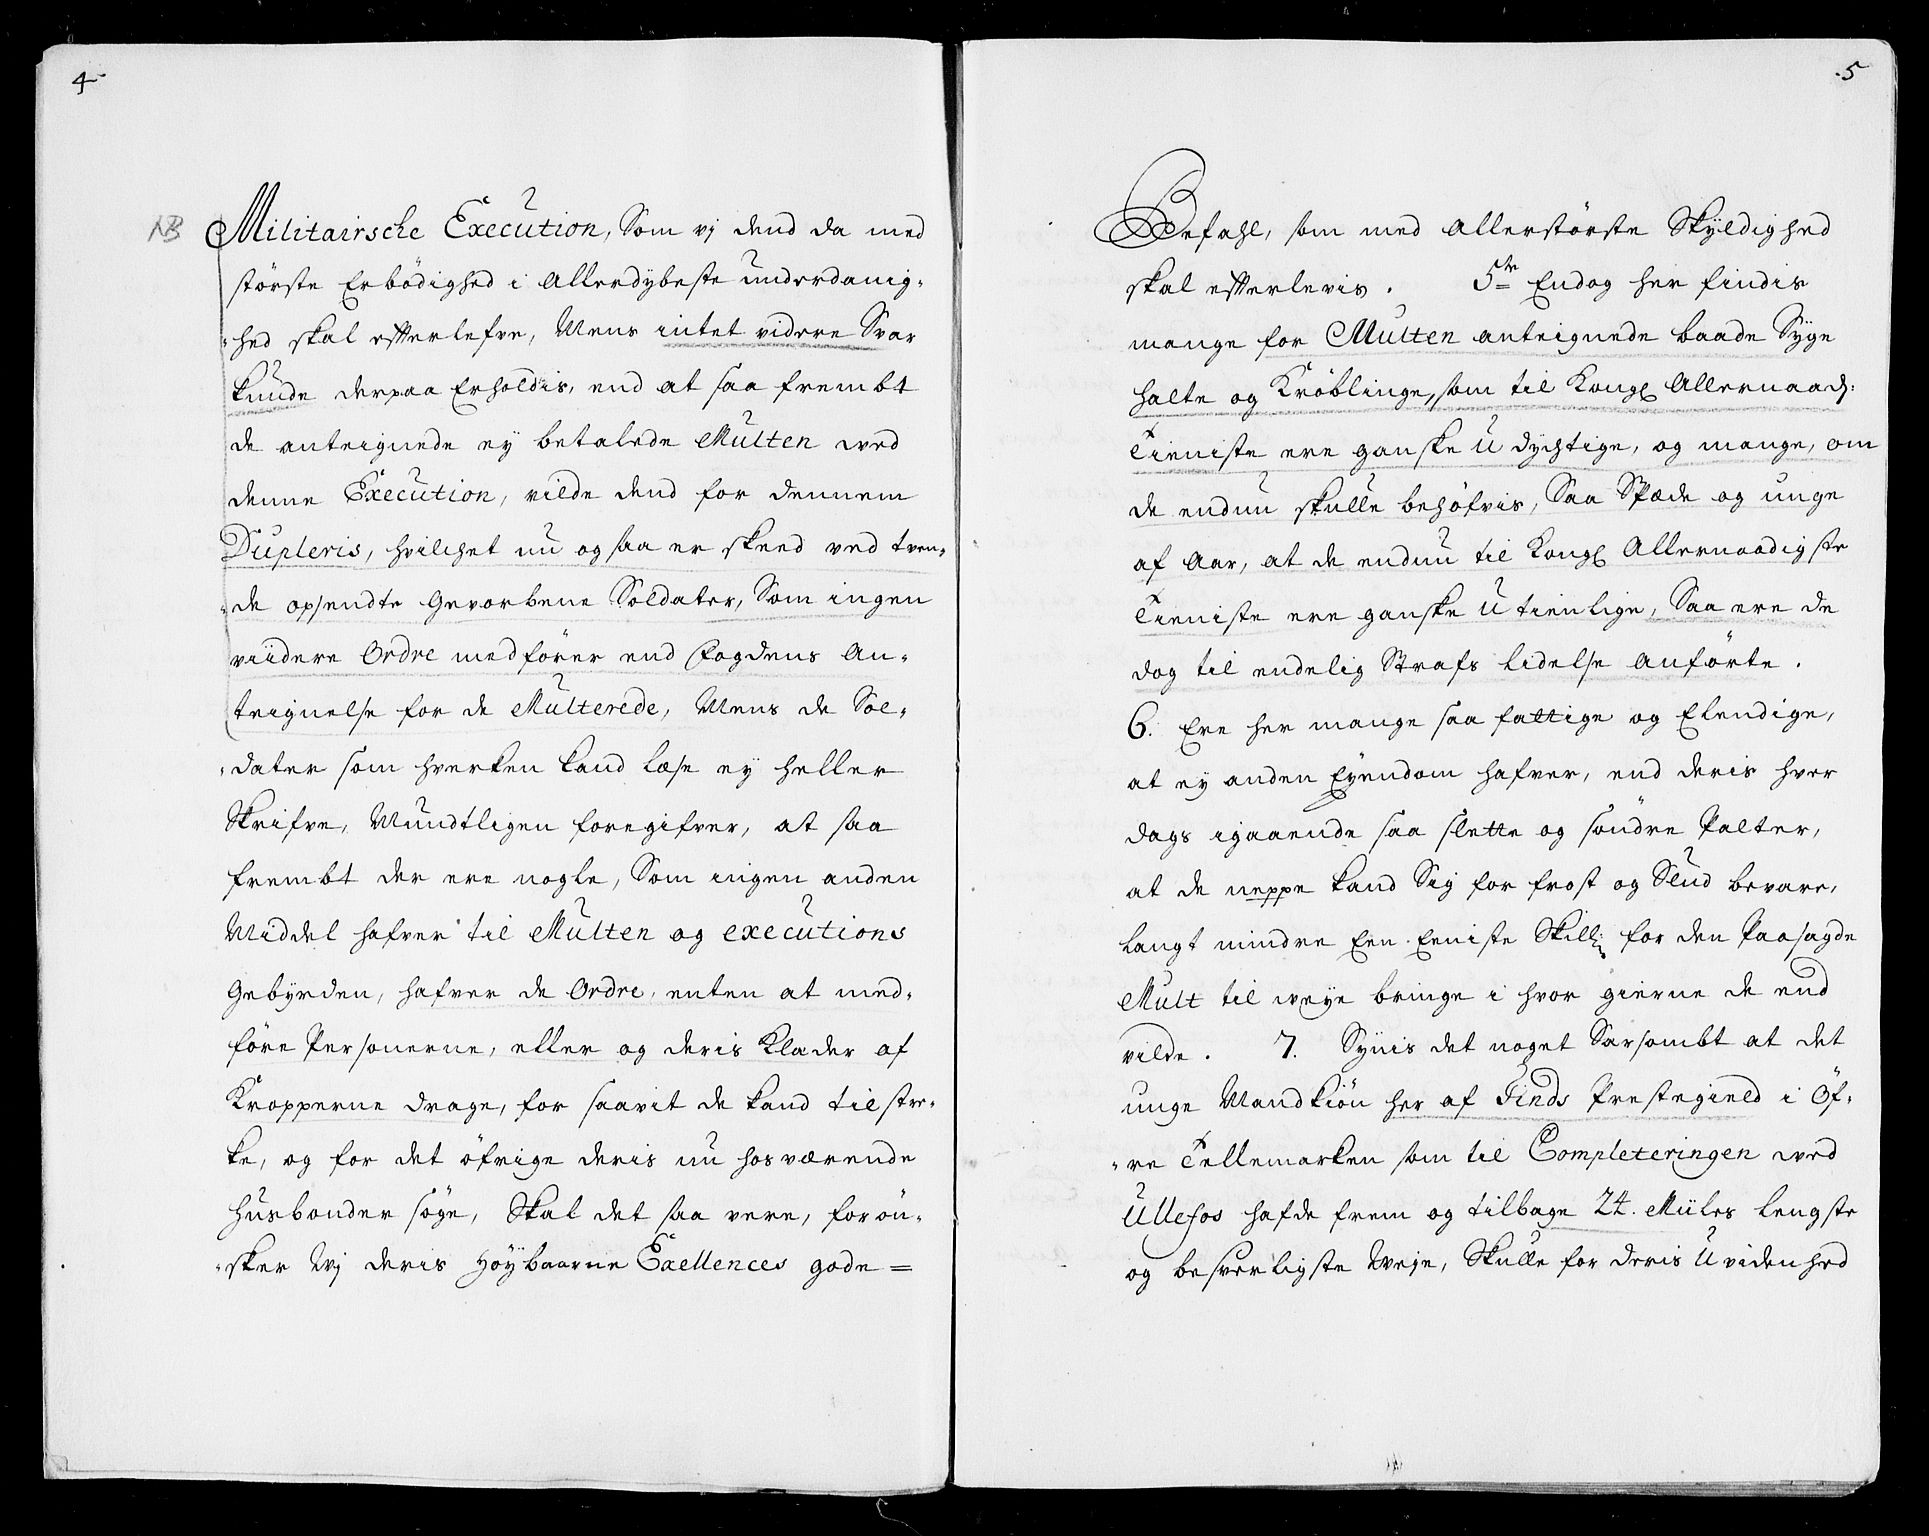 4
NB
Militairsche Execution, Som vj dend da med
störste Erbödighed i Allerdybeste underdanig-
-hed skal efterlefve, Mens intet videre Svar
kunde derpaa Erholdis, end at saa frembt
de anteignede ej betalede Multen med
denne Execution, vilde dend for dennem
Dupleris, hvilchet nu og saa er skeed ved tven-
-de opsendte Gevorbene Soldater, Som ingen
viidere Ordre medfører end Fogdens An-
teignelse for de Multerede, Mens de Sol-
-dater som hverken kand læse ey heller
Skrifve, Mundtligen foregifver, at saa
frembt der ere nogle, Som ingen anden
Middel hafver til Multen og executions
Gebyrden, hafver de Ordre, enten at med-
före Personerne, eller og deris Klæder af
Kropperne drage, for saavit de kand tilstre-
ke, og for det öfrige deris nu hosværende
Husbonder söge, Skal det saa vere, forøn-
-sker Wj deris Höybaarne Exellences gode=
5
Befahl, som med Allerstörste Skyldighed
skal efterlevis. 5te Endog her findis
mange for Multen anteignede baade Syge
halte og Kröblinge, som til Kongl Allernaad:
Tieniste ere ganske U dychtige, og mange, om
de endnu skulle behöfvis, Saa Spæde og unge
af Aar, at de endnu til Kongl Allernaadigste
Tieniste ere ganske U tienlige, Saa ere de
dog til endelig Strafs Lidelse anförte.
6. Ere her mange saa fattige og Elendige,
at ey anden Eyendom hafver, end deris hver
dags igaaende saa slette og söndre Palter,
at de neppe kand Sig for frost og Slud bevare,
langt mindre Een Eeniste Skill: for den Paasagde
Mult til weye bringe i hvor gierne de end
vilde. 7. Synis det noget Sarsombt at det
unge Mandkiön her af Tinds Prestegield i Öf-
-re Tellemarken som til Completeringen wed
Ullefos hafde frem og tilbage 24. Miiles lengste
og besverligste Weye, Skulle for deris U videnhed